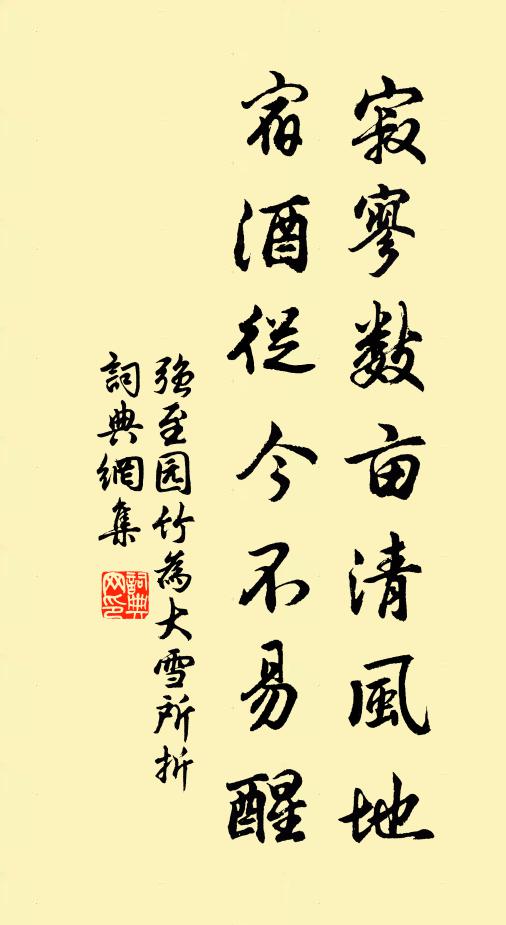 寂寥数亩清風地
宿酒從今不易醒
强至园竹為大雪所折
詞典網集
詞典
网印